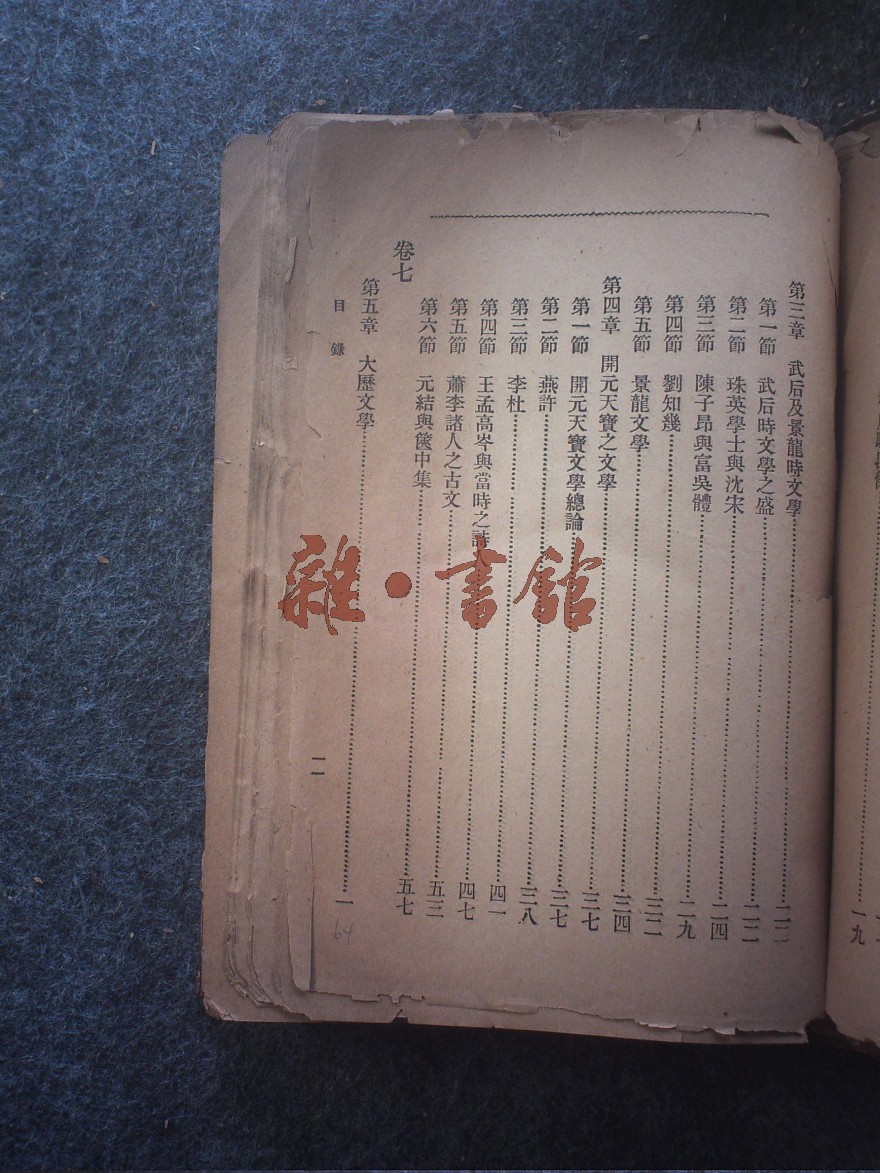 第三章 武后及景龍時文學……二二
第一節 武后時文學之盛……二二
第二節 珠英學士與沈宋……二四
第三節 陳子昂與富吳體……二九
第四節 劉知幾……三二
第五節 景龍文學……三四
第四章 開元天寶之文學……三七
第一節 開元天寶文學總論……三七
第二節 燕許……三八
第三節 李杜……四一
第四節 王孟高岑與當時之詩人……四七
第五節 蕭李諸人之古文……五三
第六節 元結與篋中集……五七
卷七
第五章 大歷文學……一
目錄
二
64
雜·書館
一九